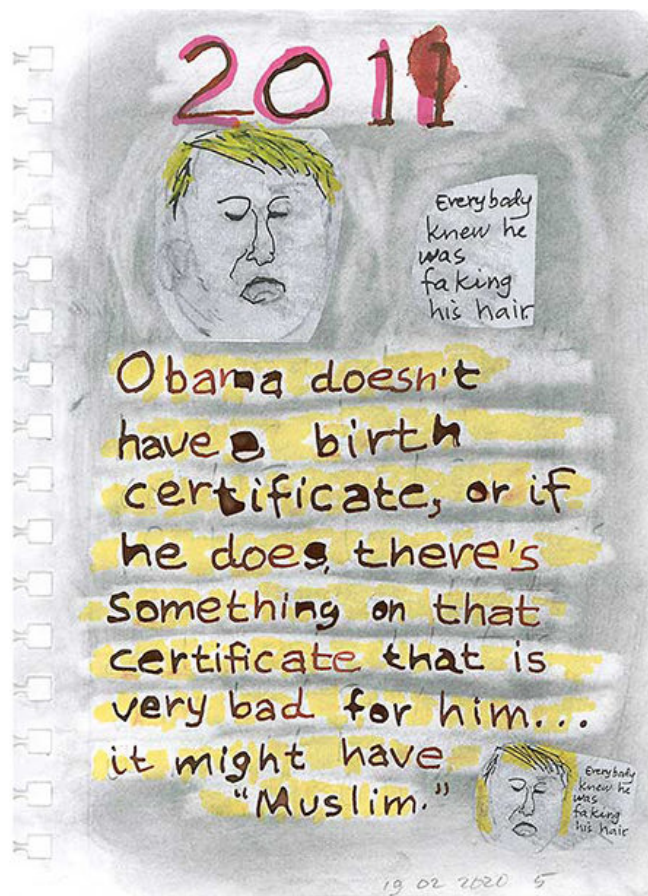 2011
Everybody
knew he
was
faking
his hair.
Obama doesn't
have a birth
certificate, or if
he does, there's
something on that
certificate that is
very bad for him...
it might have
"Muslim."
Everybody
knew he
was
faking
his hair
19 02 2020 5